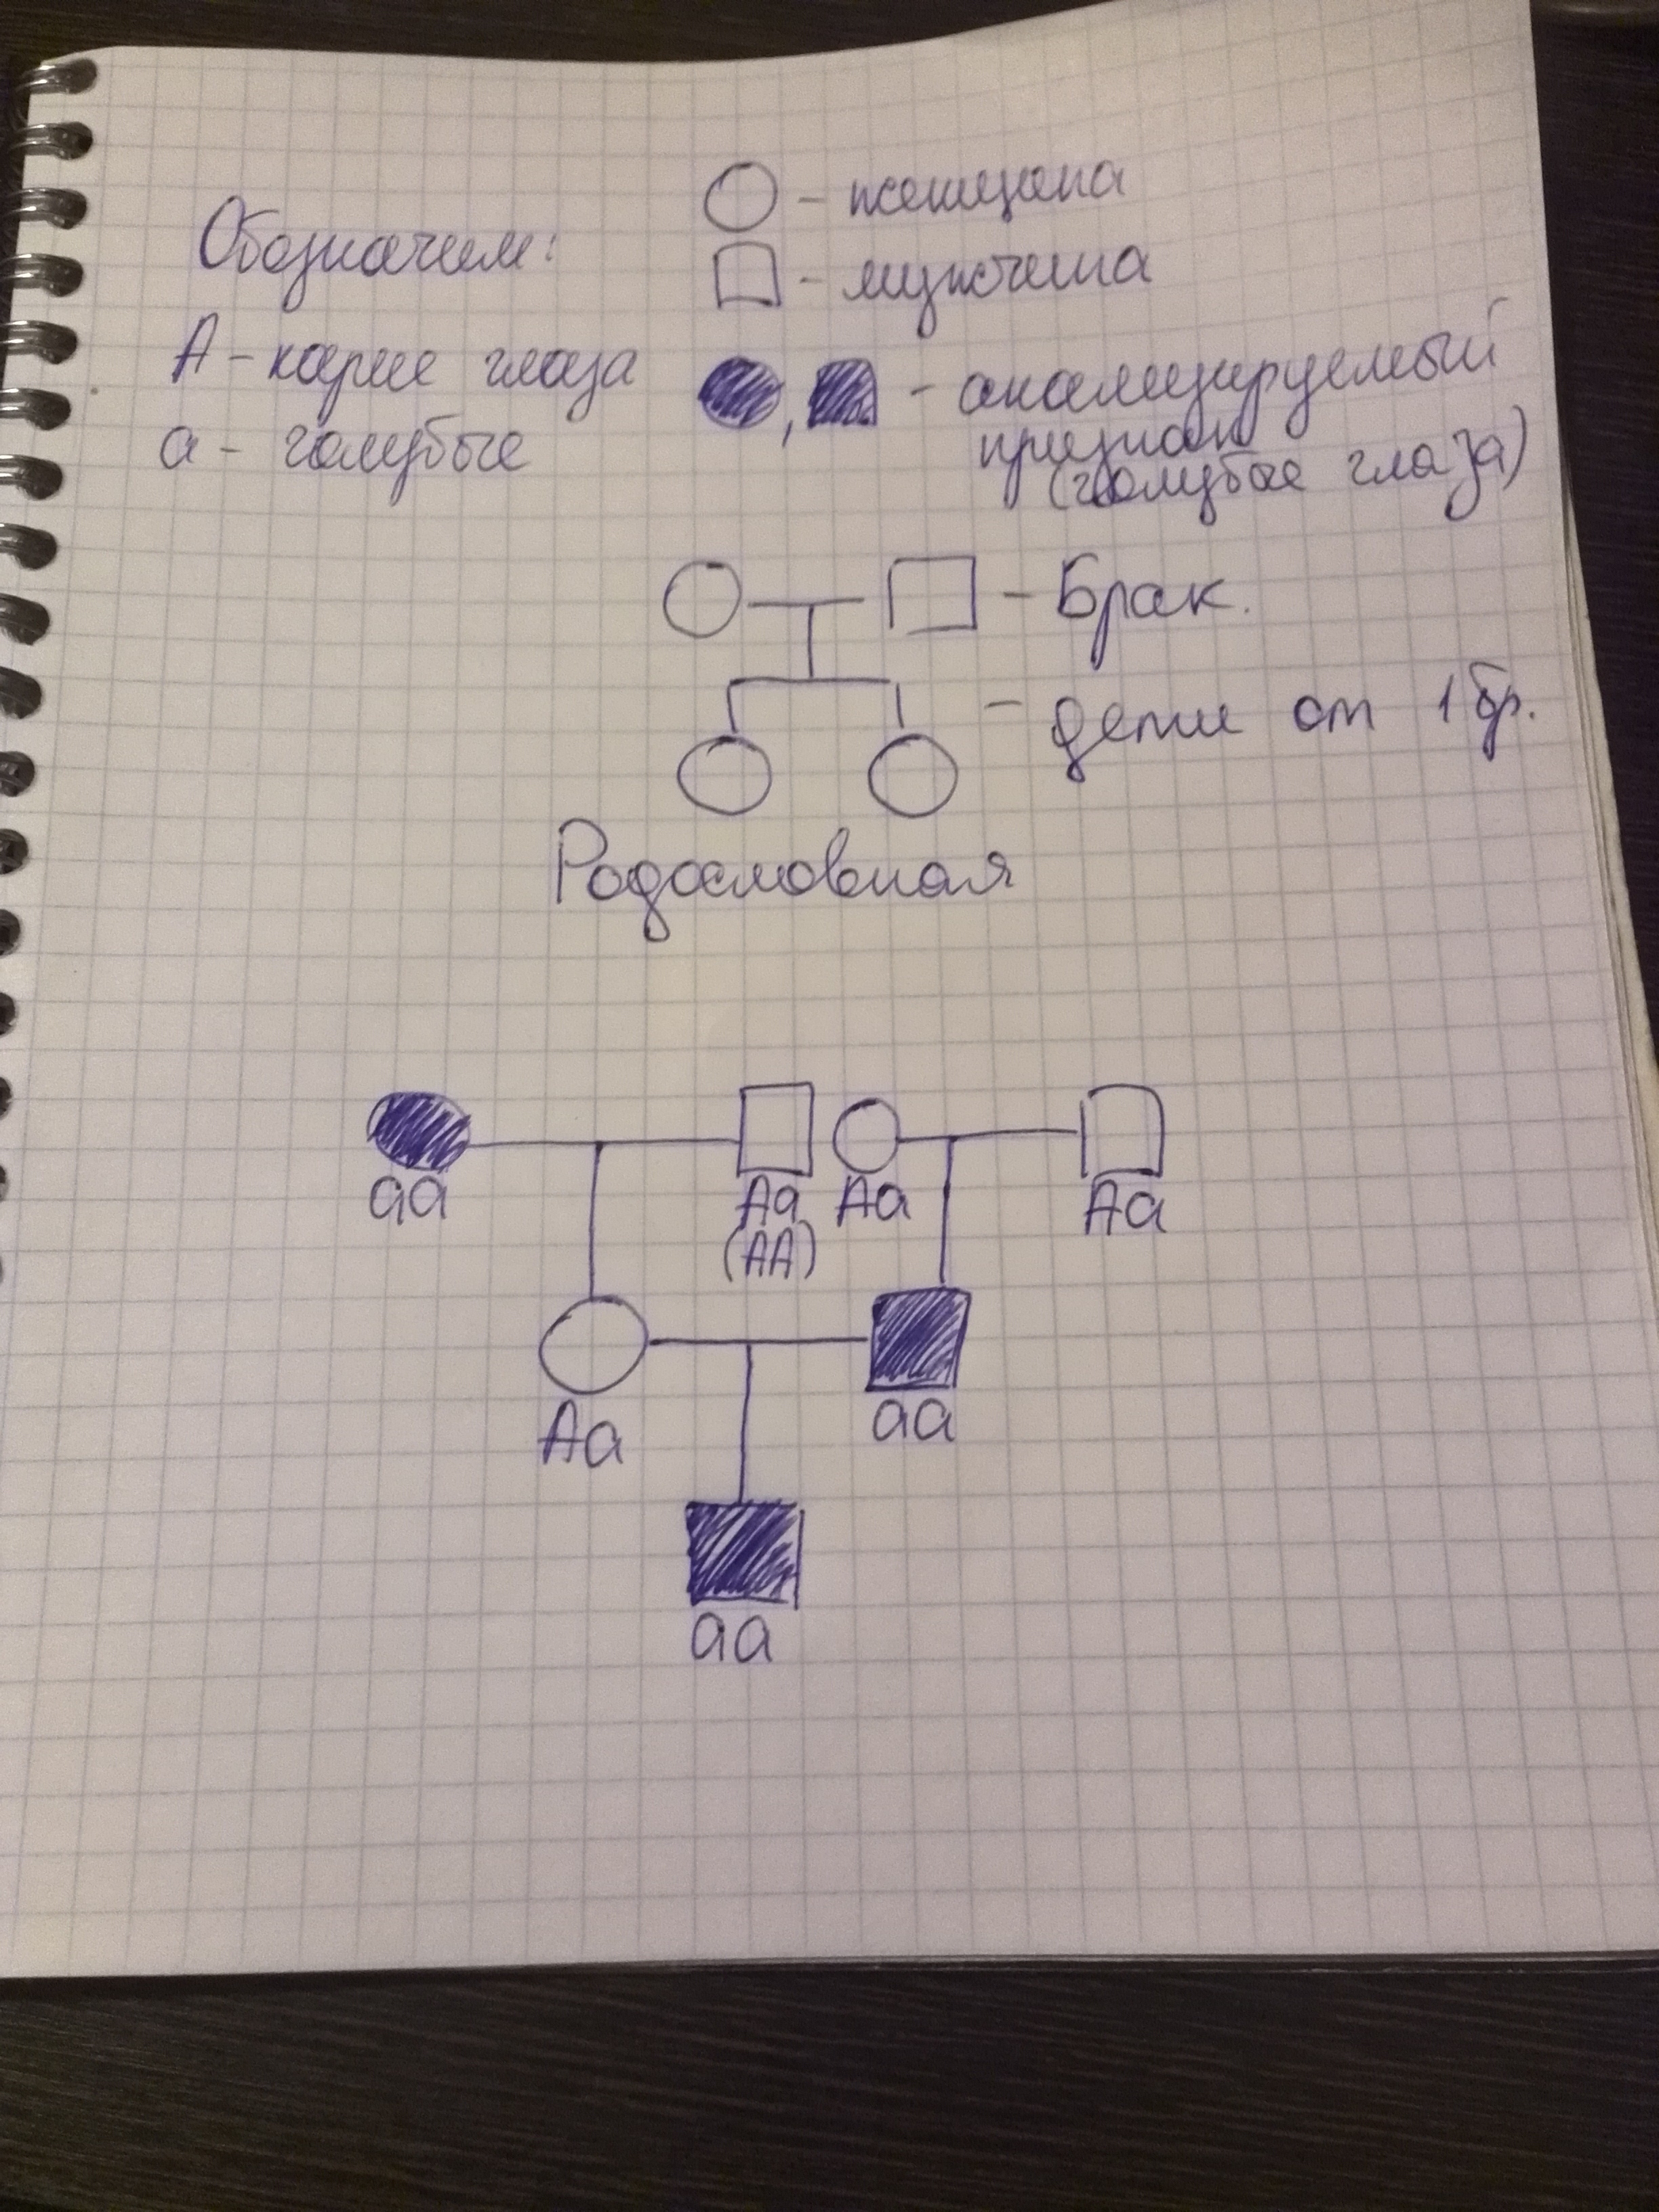 Обозначим:
А - карие глаза
а - голубые
- женщина
- мужчина
, - анализируемый
признак
(голубые глаза)
- Брак.
- дети от 1 бр.
Родословная
аа
Аа
(АА)
Аа
Аа
Аа
аа
аа